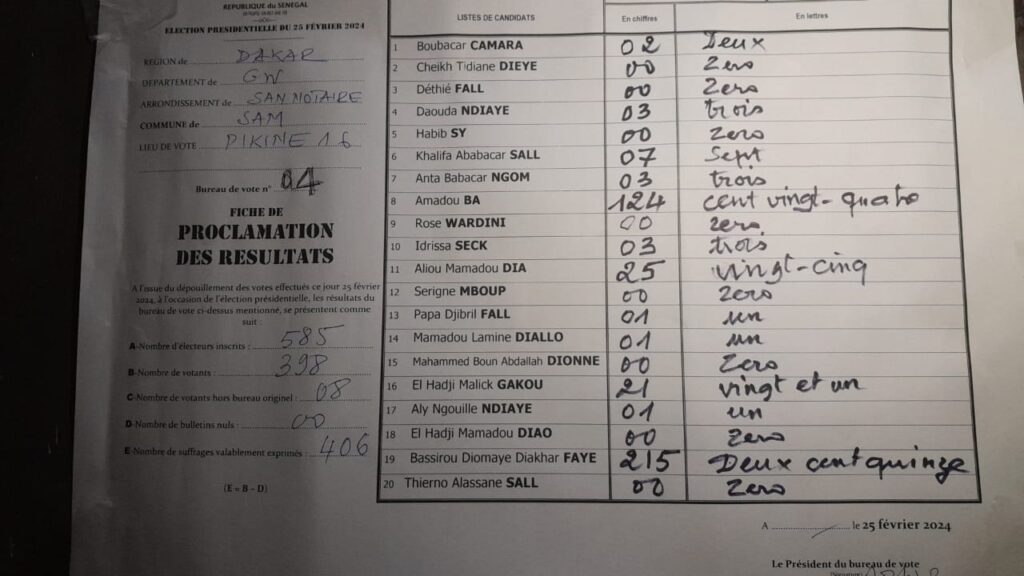 REPUBLIQUE DU SENEGAL
ELECTION PRESIDENTIELLE DU 25 FÉVRIER 2024
REGION de DAKAR
DEPARTEMENT de GW
ARRONDISSEMENT de SAM NOTAIRE
COMMUNE de SAM
LIEU DE VOTE PIKINE 16
Bureau de vote n° 04
FICHE DE
PROCLAMATION
DES RESULTATS
A l'issue du dépouillement des votes effectués ce jour 25 février
2024, à l'occasion de l'élection présidentielle, les résultats du
bureau de vote ci-dessus mentionné, se présentent comme
suit :
A-Nombre d'électeurs inscrits : 585
B-Nombre de votants : 398
C-Nombre de votants hors bureau originel : 08
D-Nombre de bulletins nuls : 00
E-Nombre de suffrages valablement exprimés : 406
(E = B - D)
LISTES DE CANDIDATS En chiffres En lettres
1 Boubacar CAMARA 02 Deux
2 Cheikh Tidiane DIEYE 00 Zero
3 Déthié FALL 00 Zero
4 Daouda NDIAYE 03 trois
5 Habib SY 00 Zero
6 Khalifa Ababacar SALL 07 Sept
7 Anta Babacar NGOM 03 trois
8 Amadou BA 124 cent vingt-quatre
9 Rose WARDINI 00 zero
10 Idrissa SECK 03 trois
11 Aliou Mamadou DIA 25 vingt-cinq
12 Serigne MBOUP 00 zero
13 Papa Djibril FALL 01 un
14 Mamadou Lamine DIALLO 01 un
15 Mahammed Boun Abdallah DIONNE 00 Zero
16 El Hadji Malick GAKOU 21 vingt et un
17 Aly Ngouille NDIAYE 01 un
18 El Hadji Mamadou DIAO 00 Zero
19 Bassirou Diomaye Diakhar FAYE 215 Deux cent quinze
20 Thierno Alassane SALL 00 Zero
A le 25 février 2024
Le Président du bureau de vote